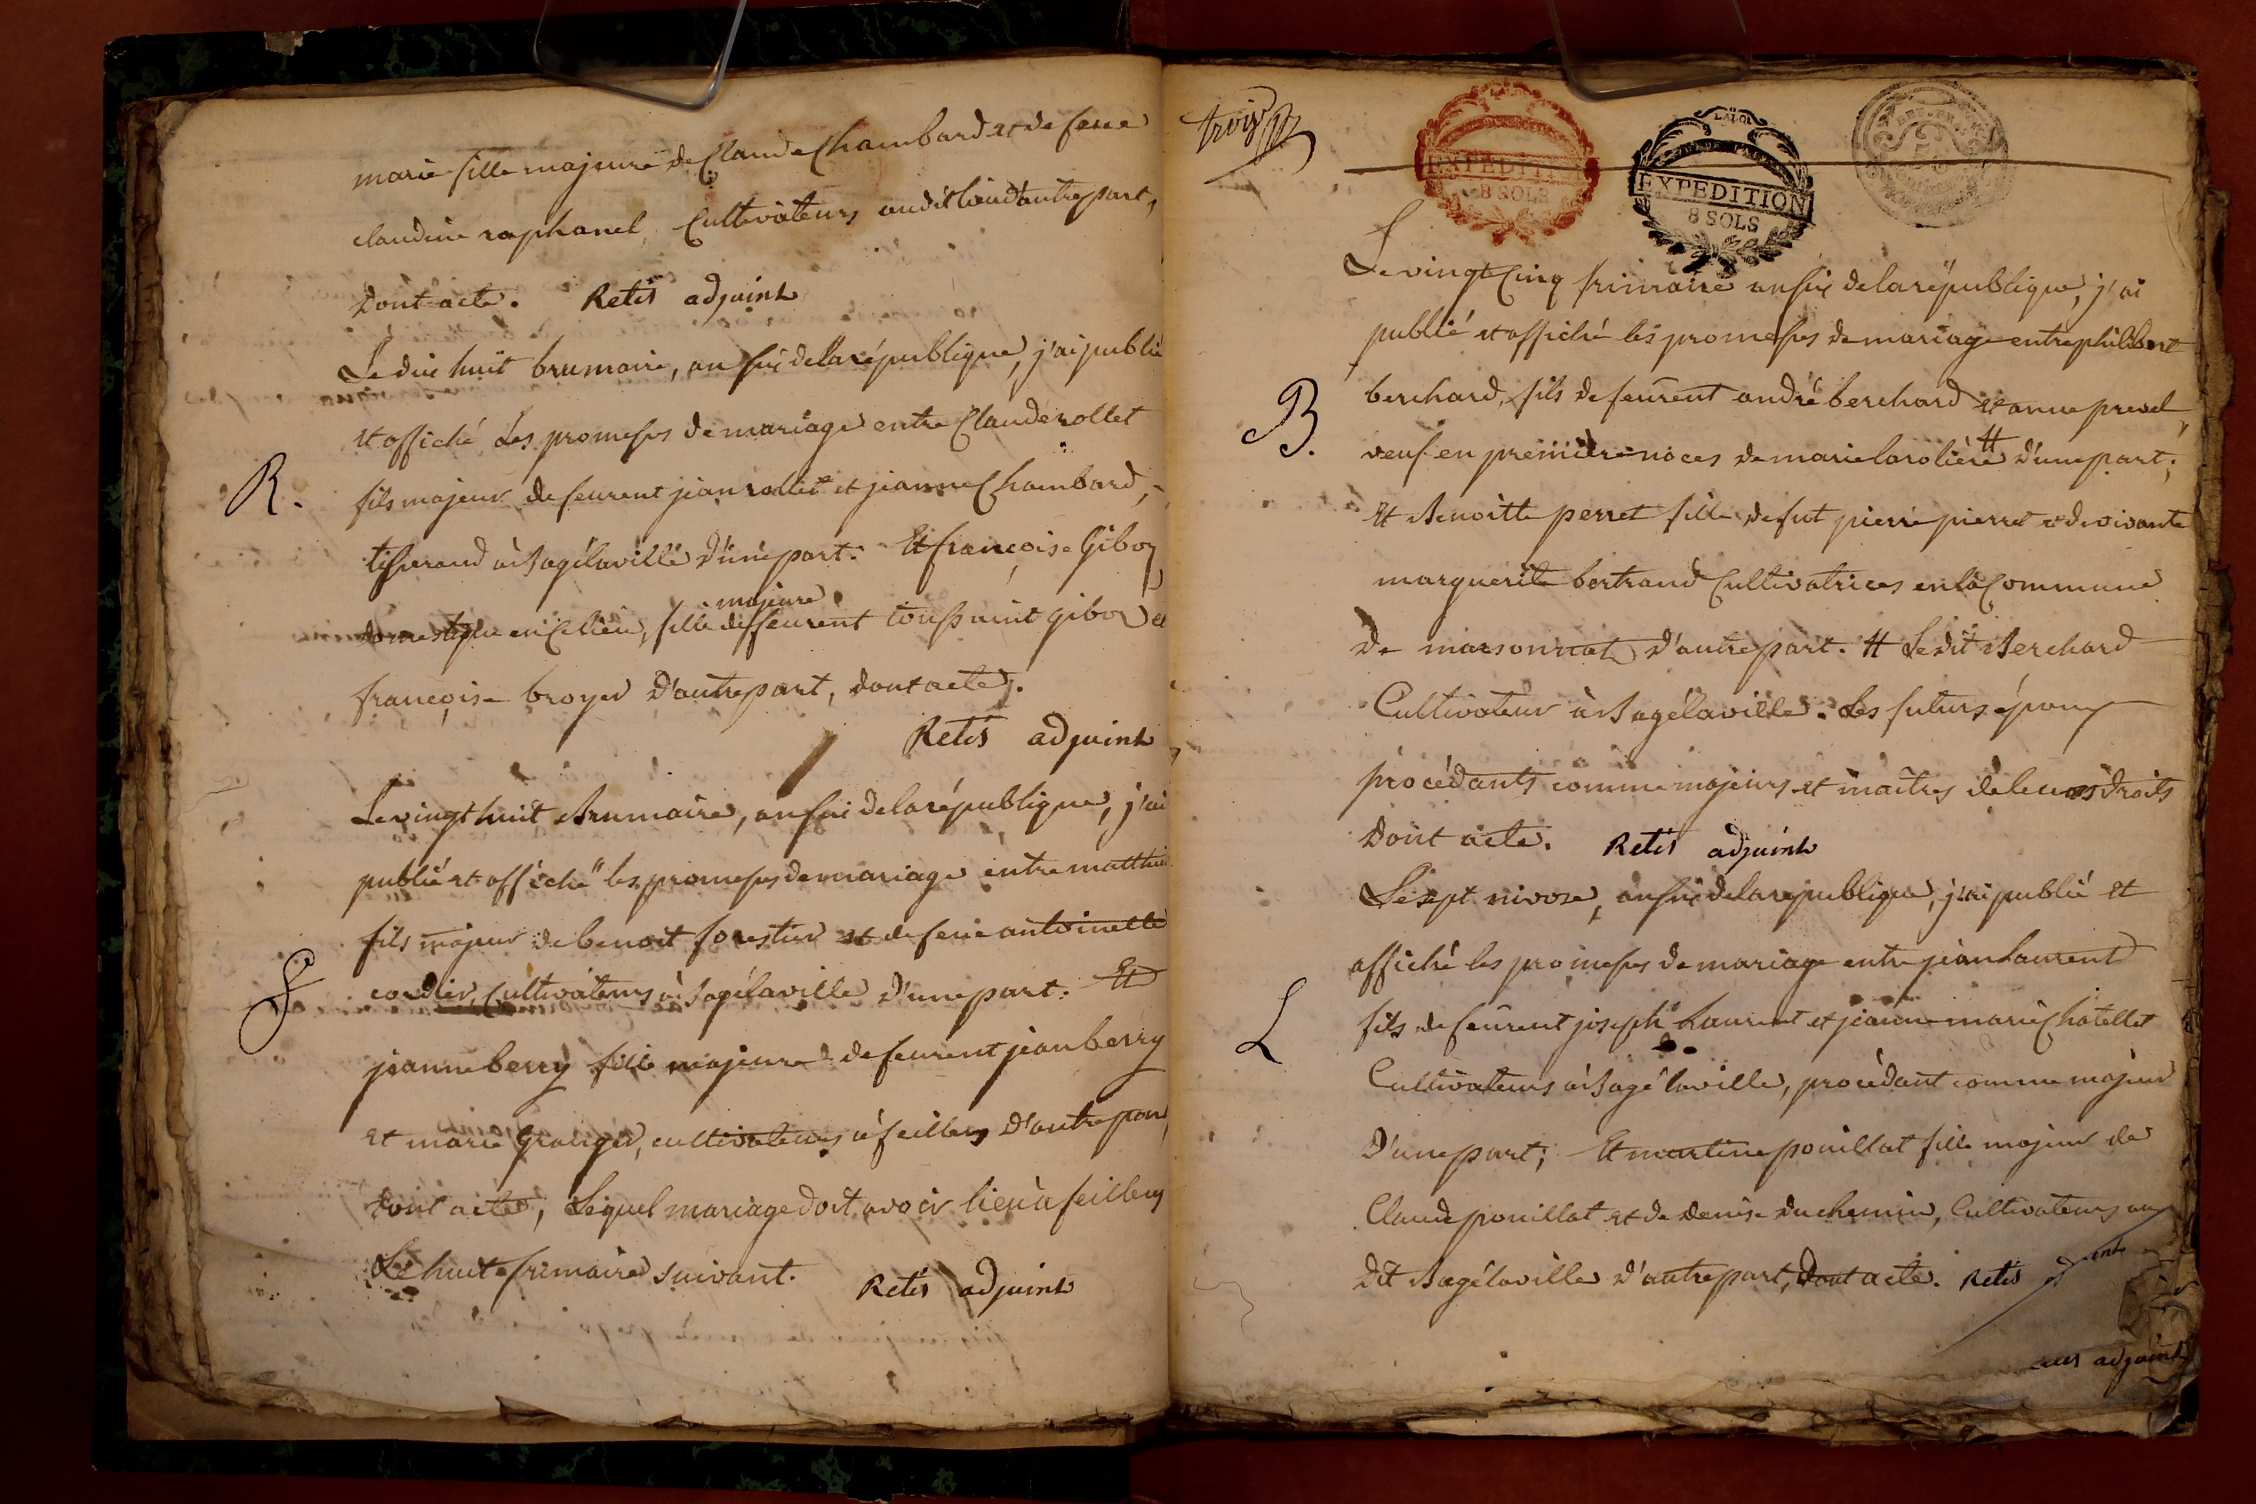 marie fille majeure de Claude Chambard et de feue
claudine raphanel, Cultivateurs audit lieu d'autre part,
dont acte. Retis adjoint
Le dix huit brumaire, an six de la république, j'ai publié
et affiché les promesses de mariage entre Claude rollet
R. fils majeur de feurent jean rollet et jeanne Chambard,
tisserand à Bagélaville d'une part. Et françoise Giboz
majeure
domestique en ce lieu, fille de feurent toussaint giboz et
françoise broyer d'autre part, dont acte.
Retis adjoint
Le vingt huit Brumaire, an six de la république, j'ai
publié et affiché les promesses de mariage entre matthieu
fils majeur de benoit forestier et de feue antoinette
F cordier, Cultivateurs à Bagélaville d'une part. Et
jeanne berry fille majeure de feurent jean berry
et marie Granger, cultivateurs à feillens d'autre part,
dont acte, Lequel mariage doit avoir lieu à feillens
Le huit frimaire suivant. Retis adjoint
trois
LA LOI
EXPEDITION
8 SOLS
LA LOI
EXPEDITION
8 SOLS
Le vingt Cinq frimaire an six de la république, j'ai
publié et affiché les promesses de mariage entre philibert
B. berchard, fils de feurent andré berchard et anne prevel,
veuf en première noces de marie larolière # d'une part;
Et Benoitte perret fille de fut pierre pierret et de vivante
marguerite bertrand Cultivatrices en la Commune
de marsonnat d'autre part. # Le dit Berchard
Cultivateur à Bagélaville. Les futurs époux
procédants comme majeurs et maîtres de leurs droits
Dont acte. Retis adjoint
Le sept nivose, an six de la république, j'ai publié et
affiché les promesses de mariage entre jean Laurent
L fils de feurent joseph Laurent et jeanne marie Chatellet
Cultivateurs à Bagélaville, procédant comme majeur
D'une part; Et martine pouillat fille majeur de
Claude pouillat et de denise duchemin, Cultivateurs au
Dit Bagélaville d'autre part, Dont acte. Retis adjoint
adjoint